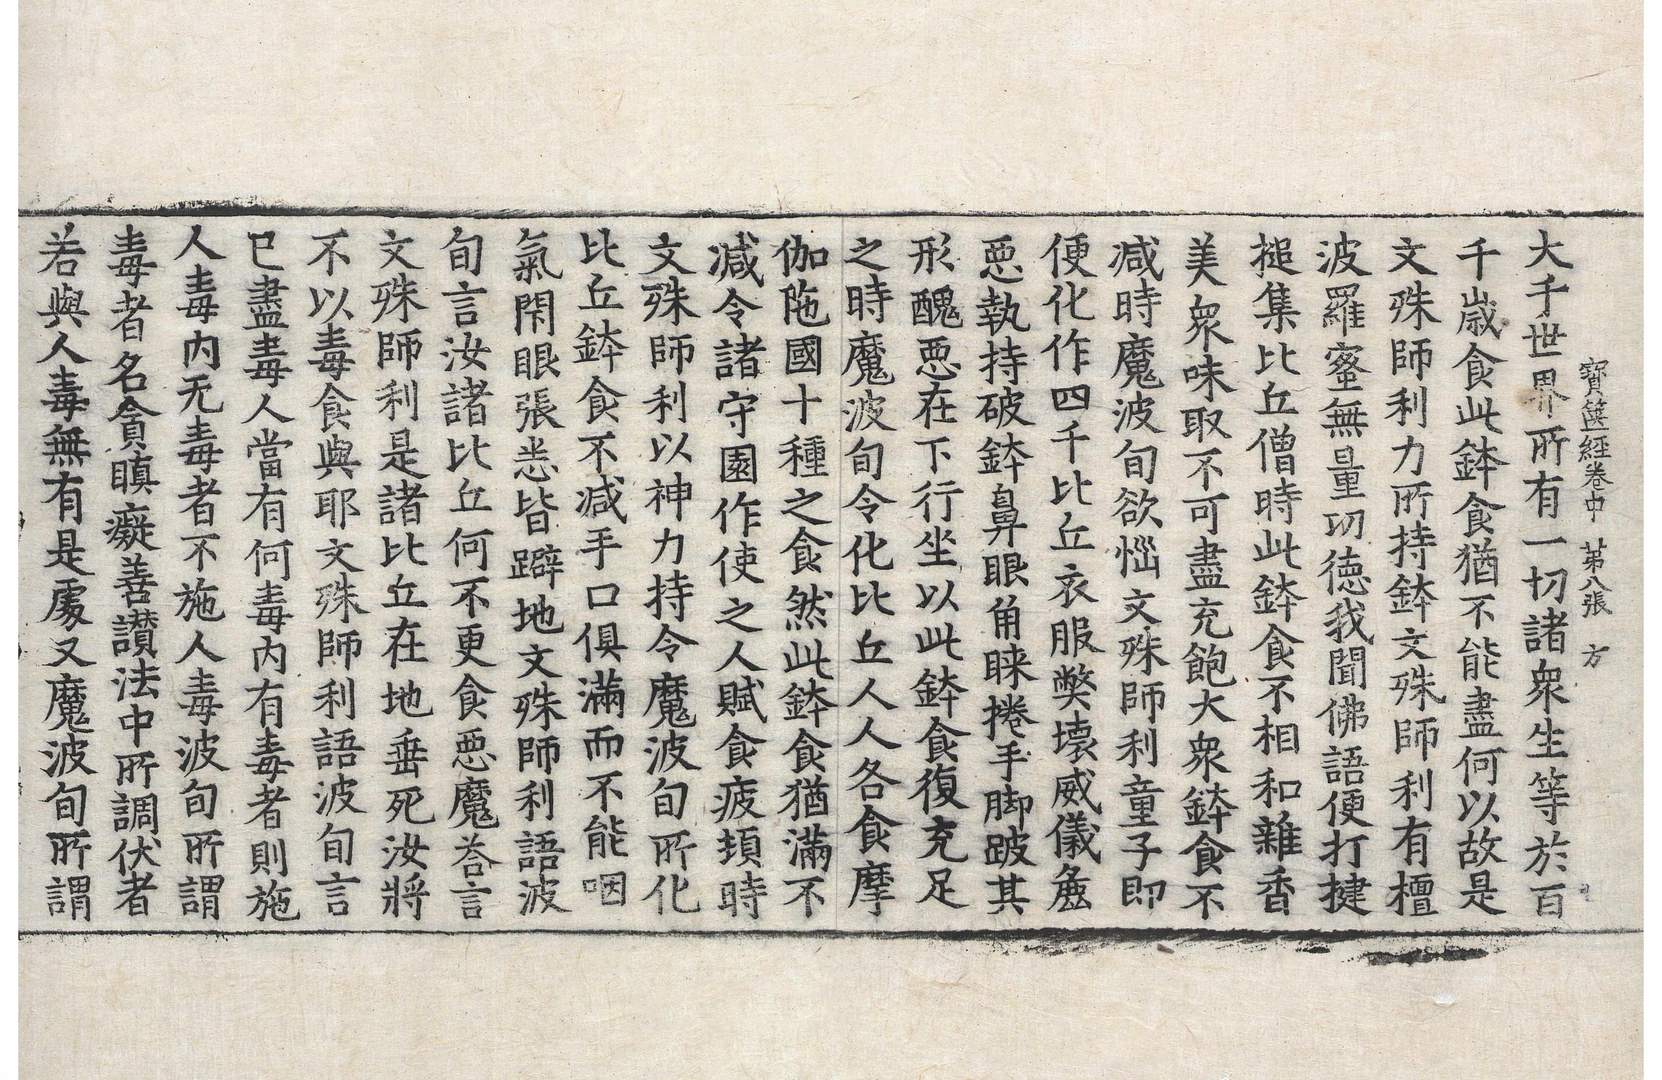 寶篋經卷中 第八張 方
大千世界所有一切諸衆生等於百
千歲食此鉢食猶不能盡何以故是
文殊師利力所持鉢文殊師利有檀
波羅蜜無量功徳我聞佛語便打揵
搥集比丘僧時此鉢食不相和雜香
美衆味取不可盡充飽大衆鉢食不
減時魔波旬欲惱文殊師利童子即
便化作四千比丘衣服弊壞威儀麁
惡執持破鉢鼻眼角睞捲手脚跛其
形醜惡在下行坐以此鉢食復充足
之時魔波旬令化比丘人人各食摩
伽陁國十種之食然此鉢食猶滿不
減令諸守園作使之人賦食疲頓時
文殊師利以神力持令魔波旬所化
比丘鉢食不減手口俱滿而不能咽
氣閇眼張悉皆躃地文殊師利語波
旬言汝諸比丘何不更食惡魔荅言
文殊師利是諸比丘在地垂死汝將
不以毒食與耶文殊師利語波旬言
已盡毒人當有何毒內有毒者則施
人毒內无毒者不施人毒波旬所謂
毒者名貪瞋癡善讃法中所調伏者
若與人毒無有是處又魔波旬所謂